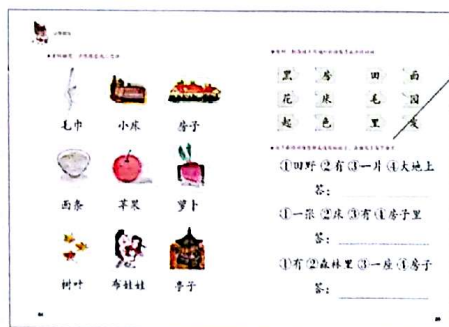 毛巾 小床 房子
面条 苹果 萝卜
树叶 布娃娃 亭子
黑 房 田 面
花 床 毛 园
起 色 里 发
①田野 ②有 ③一片 ④大地上
答：
①一张 ②床 ③有 ④房子里
答：
①有 ②森林里 ③一座 ④房子
答：